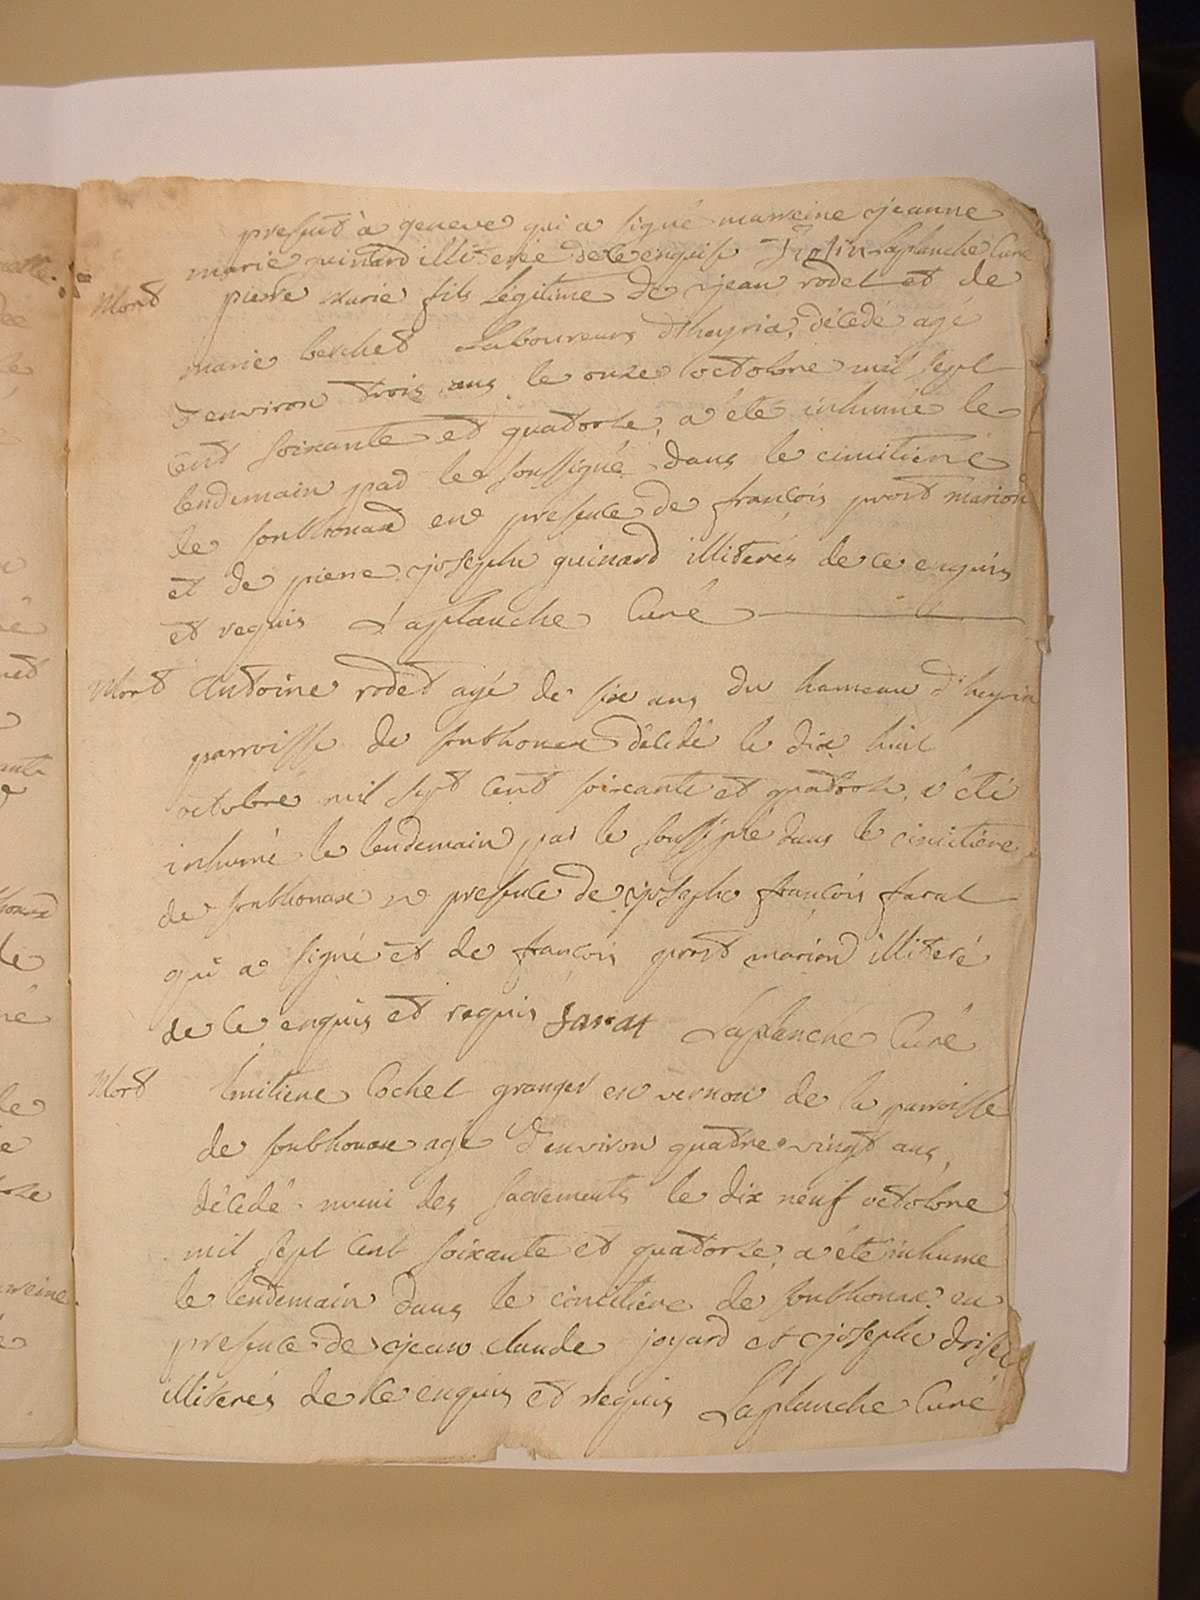 present à geneve qui a signé marreine jeanne
marie guinard illiterée de ce enquise Laplanche Curé
Mort pierre marie fils légitime de jean rodet et de
marie berchet Laboureurs d'heyria, décédé agé
d'environ trois ans le onze octobre mil sept
cent soixante et quatorze, a été inhumé le
lendemain par le soussigné dans le cimitiere
de soubhonax en presence de françois prost marion
et de pierre joseph guinard illiterés de ce enquis
et requis Laplanche Curé
Mort Antoine rodet agé de six ans du hameau d'heyria
parroisse de soubhonax décédé le dix huit
octobre mil sept cent soixante et quatorze, a été
inhumé le lendemain par le soussigné dans le cimitiere
de soubhonax en presence de joseph françois farat
qui a signé et de françois prost marion illiteré
de ce enquis et requis farat Laplanche Curé
Mort Emiliene Cochet granger en vernon de la parroisse
de soubhonax agé d'environ quatre vingt ans,
décédé muni des sacrements le dix neuf octobre
mil sept cent soixante et quatorze, a été inhumé
le lendemain dans le cimitiere de soubhonax en
presence de jean claude joyard et joseph
illiterés de ce enquis et requis Laplanche Curé